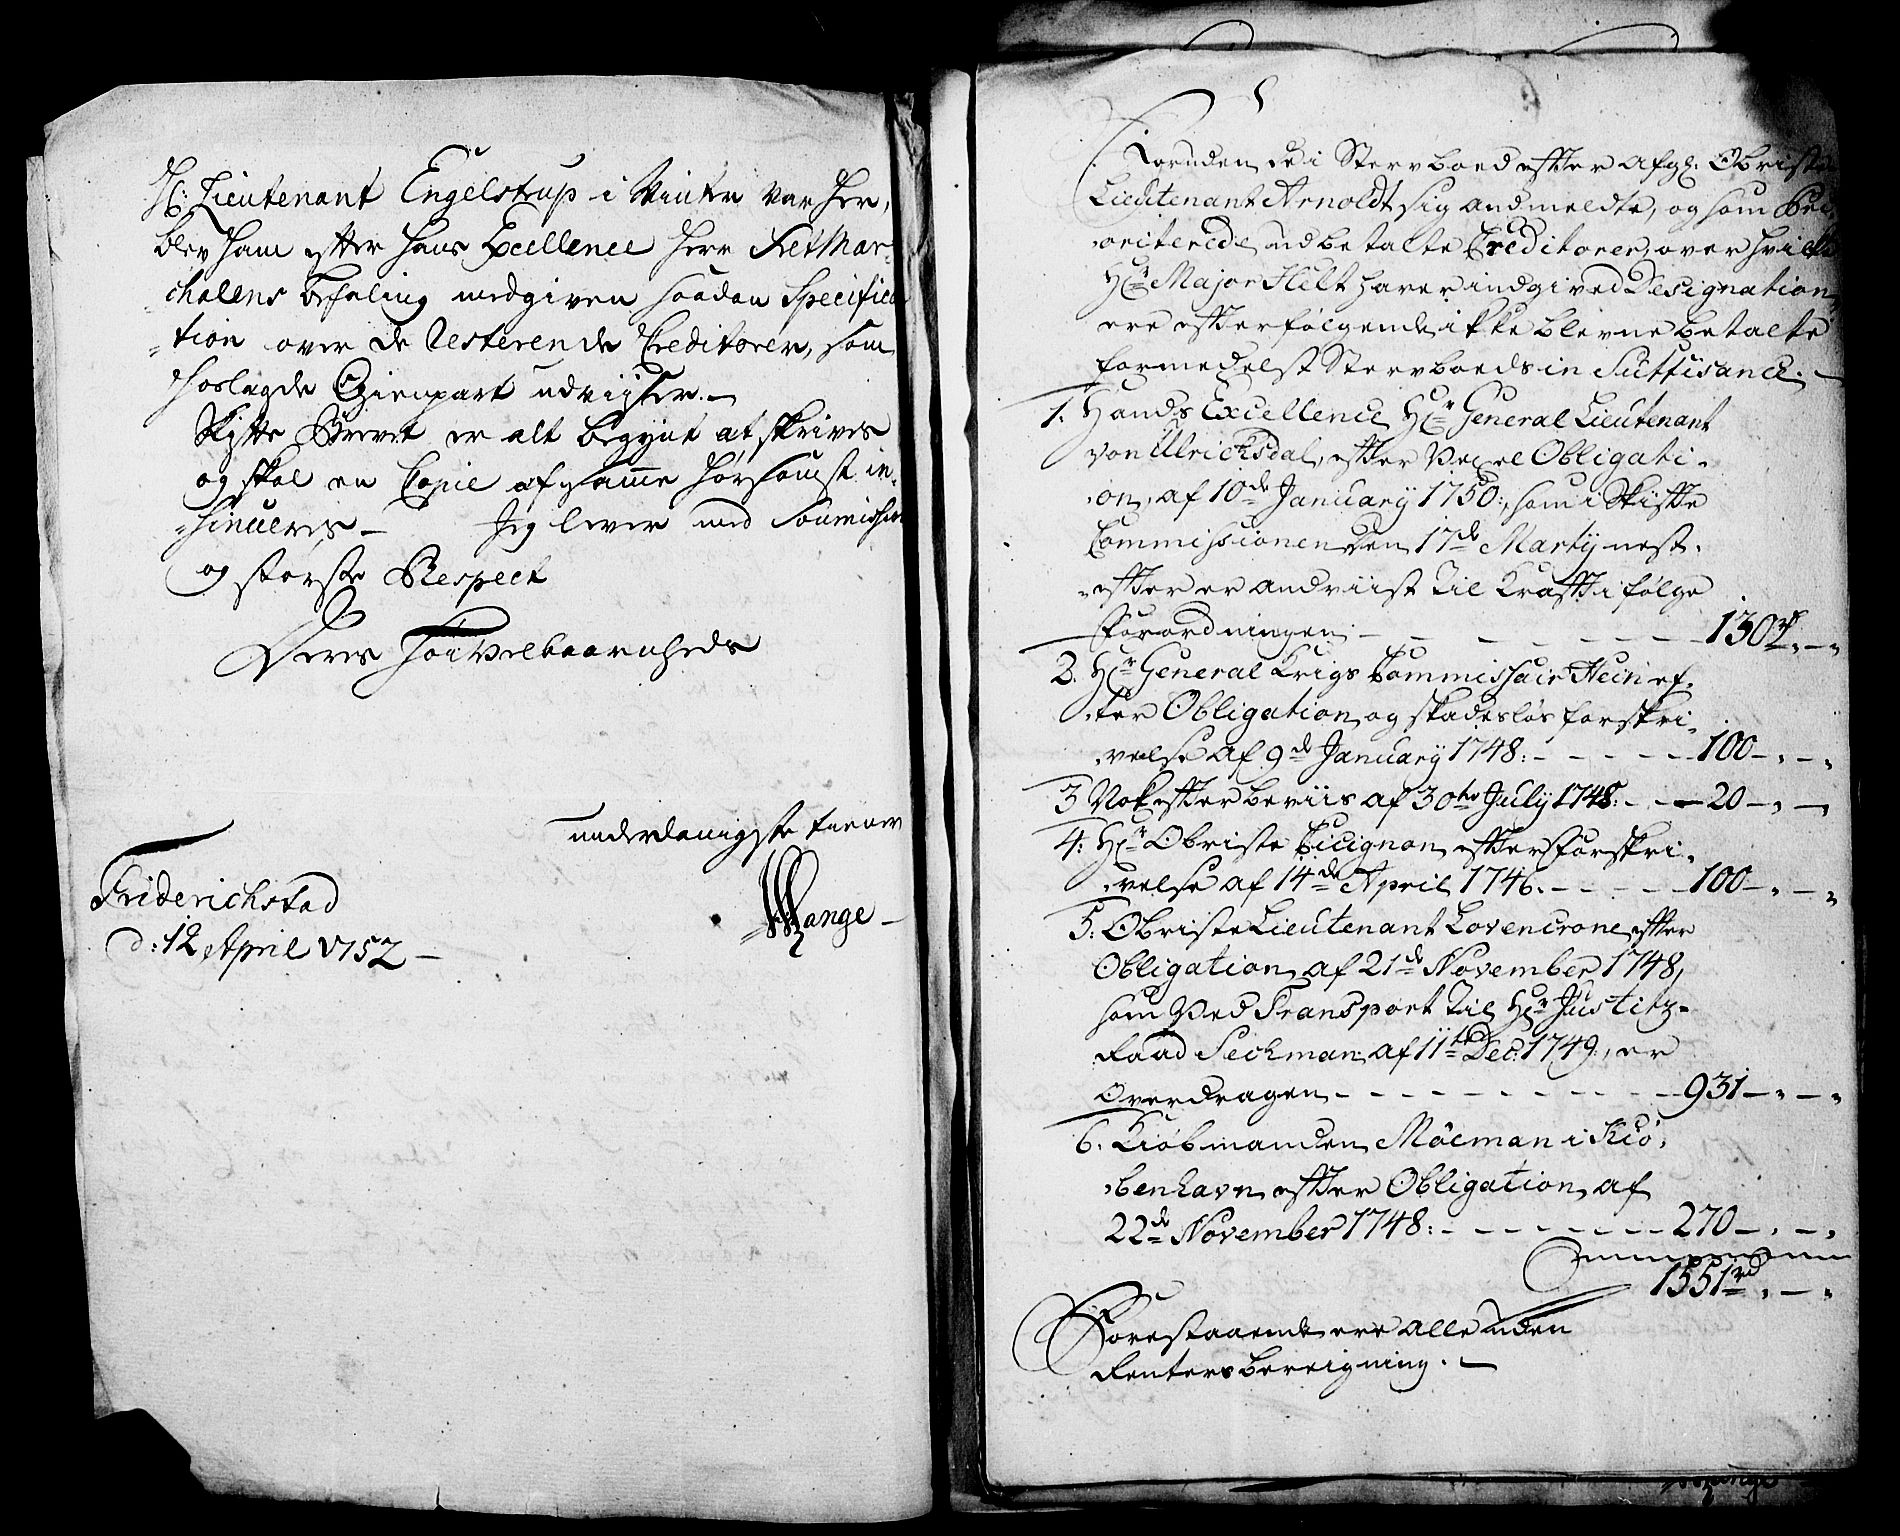 H: Lieutenant Engelstrup i Vinter var her,
blev ham efter Hans Excellence Herr Feltmar-
schalens befaling medgiven saadan Specifica
-tion over de Resterende Creditorer, som
hoslagde Gienpart udviiser. —
Skifte Brevet er alt begynt at skrives
og skal en Copie af samme hørsomst in-
-sinueris — Jeg lever med Soumission
og største Respect
Deres Høivelbaarnheds
underdanigste tiener
Friderichstad
d: 12 April 1752 —
Mange —
Foruden de i Stervboed efter afg: Obriste
Lieutenant Arnoldt sig andmeldte, og som Pri-
-oriterede udbetalte Creditorer, over hvilke
Hr Major Helt haver indgived Designation,
ere efterfølgende ikke blevne betalte
formedelst Stervboeds in Suffisance. —
1. Hands Excellence Hr General Lieutenant
von Ulrichsdal, efter Vexel Obligati-
-on, af 10de January 1750, som i Skifte
Commissionen den 17de Martij nest-
-efter er andviist til Krafft i følge
Forordningen - - - - - 130 rd „ — „
2. Hr General Krigs Commissair Hein ef-
-ter Obligation og skadesløs forskri-
-velse af 9de January 1748: - - - - 100 — „ — „
3 Nok efter beviis af 30te July 1748: - - 20 — „ —
4: Hr Obriste Cicignon efter Forskri-
-velse af 14de April 1746. - - - - 100 — „ — „
5: Obriste Lieutenant Lovencrone efter
Obligation af 21de November 1748,
som ved Transport til Hr Justitz-
Raad Seckman af 11te Dec: 1749, er
Overdragen - - - - - - - 931 — „ — „
6. Kiøbmanden Möeman i Kiø-
-benhavn efter Obligation af
22de November 1748: - - - - - 270 — „ — „
1551 rd „ — „
Forestaaende ere alle uden
Renters bereigning. —